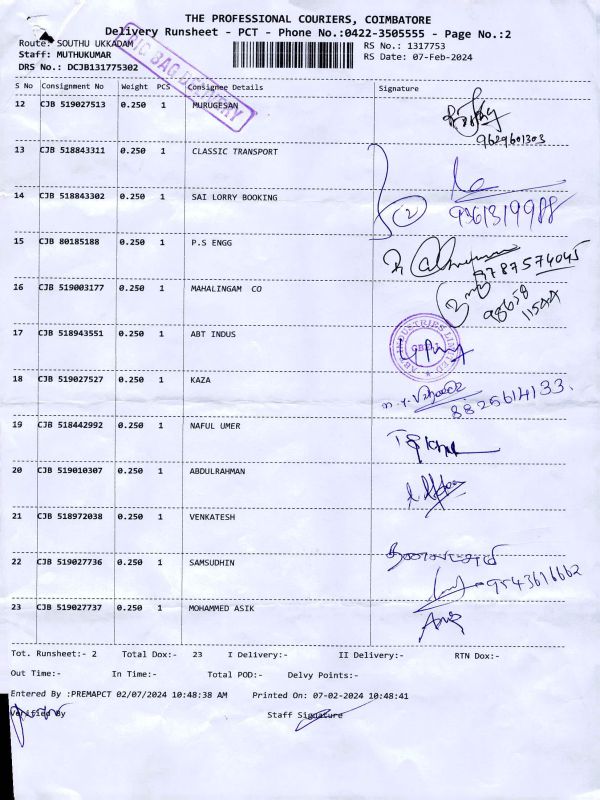 THE PROFESSIONAL COURIERS, COIMBATORE
Delivery Runsheet - PCT - Phone No.:0422-3505555 - Page No.:2
Route: SOUTHU UKKADAM
RS No.: 1317753
Staff: MUTHUKUMAR
RS Date: 07-Feb-2024
DRS No.: DCJB131775302
BAG DELIVERY
S No Consignment No Weight PCS Consignee Details Signature
12 CJB 519027513 0.250 1 MURUGESAN
9629601303
13 CJB 518843311 0.250 1 CLASSIC TRANSPORT
14 CJB 518843302 0.250 1 SAI LORRY BOOKING
(2) 9361319988
15 CJB 80185188 0.250 1 P.S ENGG
9787574045
16 CJB 519003177 0.250 1 MAHALINGAM CO
98658
11544
17 CJB 518943551 0.250 1 ABT INDUS
ABT INDUSTRIES LIMITED
18 CJB 519027527 0.250 1 KAZA
8825614133.
19 CJB 518442992 0.250 1 NAFUL UMER
20 CJB 519010307 0.250 1 ABDULRAHMAN
21 CJB 518972038 0.250 1 VENKATESH
22 CJB 519027736 0.250 1 SAMSUDHIN
9543616662
23 CJB 519027737 0.250 1 MOHAMMED ASIK
Tot. Runsheet:- 2 Total Dox:- 23 I Delivery:- II Delivery:- RTN Dox:-
Out Time:- In Time:- Total POD:- Delvy Points:-
Entered By :PREMAPCT 02/07/2024 10:48:38 AM Printed On: 07-02-2024 10:48:41
Verified By Staff Signature